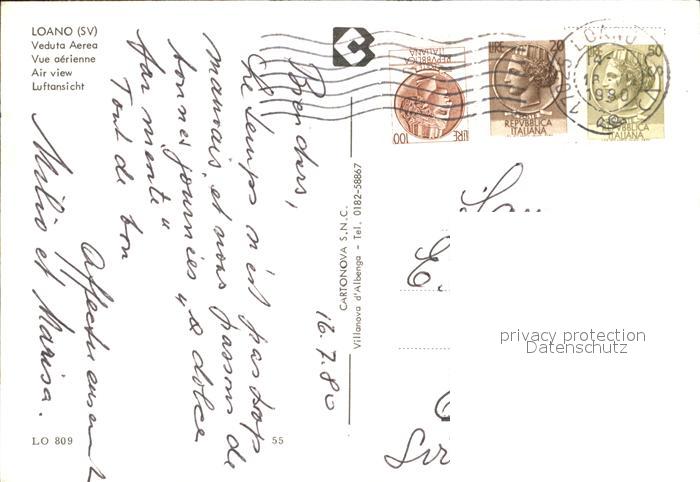 LOANO (SV)
Veduta Aerea
Vue aérienne
Air view
Luftansicht
LO 809
55
16.7.80
Bien chers,
Le temps n'est pas trop
mauvais, et nous passons de
bonnes journées "de dolce
far niente"
Tout de bon
Affectueusement
Milio et Marisa.
CARTONOVA S.N.C.
Villanova d'Albenga - Tel. 0182-58867
LIRE 100
REPVBBLICA
ITALIANA
LIRE 20
REPVBBLICA
ITALIANA
50
REPVBBLICA
ITALIANA
LOANO
1980
E.
privacy protection
Datenschutz